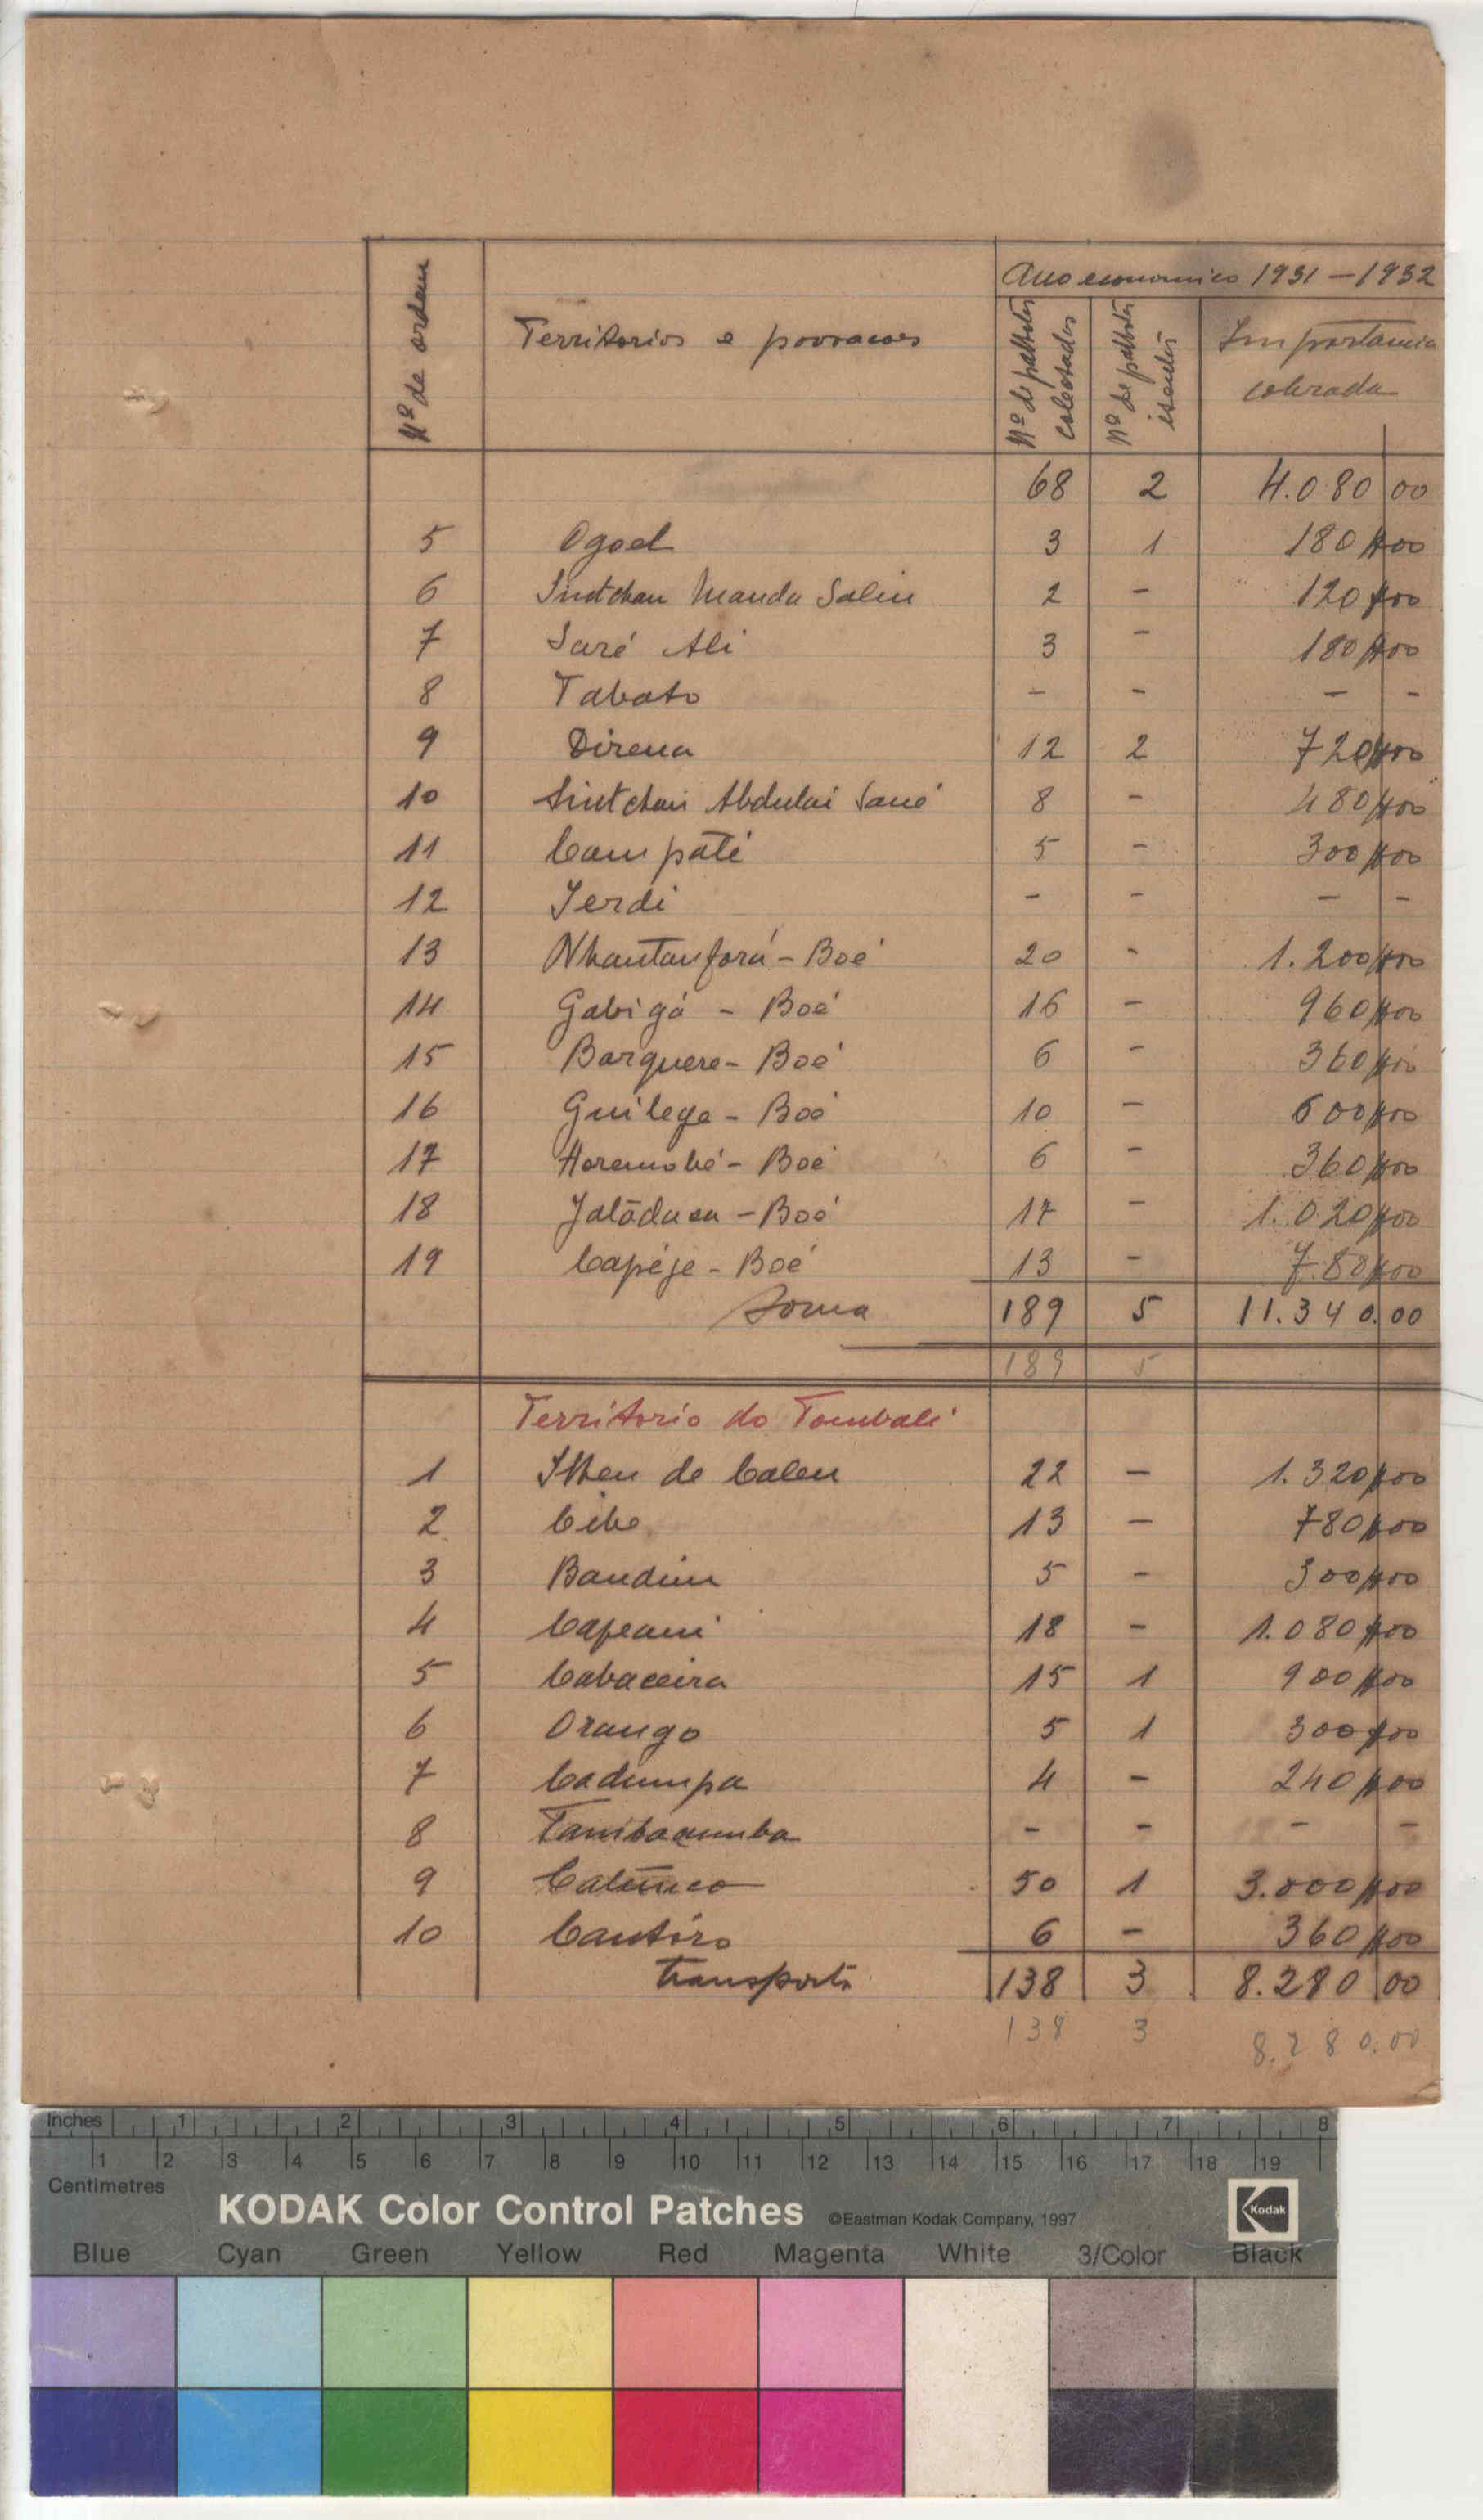 Nº de ordem
Territorios e povoacoes
Ano economico 1931 – 1932
Nº de palhotas colectadas
Nº de palhotas isentas
Importancia cobrada
68 2 4.080 00
5 Ogoel 3 1 180$00
6 Sintchan Manda Saliu 2 - 120$00
7 Saré Ali 3 - 180$00
8 Tabato - - - -
9 Direna 12 2 720$00
10 Sintchan Abdulai Sané 8 - 480$00
11 Campaté 5 - 300$00
12 Jerdi - - - -
13 Nhantanfará - Boé 20 - 1.200$00
14 Gabigá - Boé 16 - 960$00
15 Barquere - Boé 6 - 360$00
16 Guilege - Boé 10 - 600$00
17 Horemobé - Boé 6 - 360$00
18 - Boé 17 - 1.020$00
19 Capéje - Boé 13 - 780$00
Soma 189 5 11.340.00
189 5
Territorio do Tombali
1 de Calen 22 - 1.320$00
2 Cibe 13 - 780$00
3 Bandim 5 - 300$00
4 18 - 1.080$00
5 Cabaceira 15 1 900$00
6 Orango 5 1 300$00
7 Cadumpa 4 - 240$00
8 - - - -
9 50 1 3.000$00
10 Cantóro 6 - 360$00
Transporte 138 3 8.280 00
138 3 8.280.00
Inches 1 2 3 4 5 6 7 8
1 2 3 4 5 6 7 8 9 10 11 12 13 14 15 16 17 18 19
Centimetres
KODAK Color Control Patches ©Eastman Kodak Company, 1997 Kodak
Blue Cyan Green Yellow Red Magenta White 3/Color Black